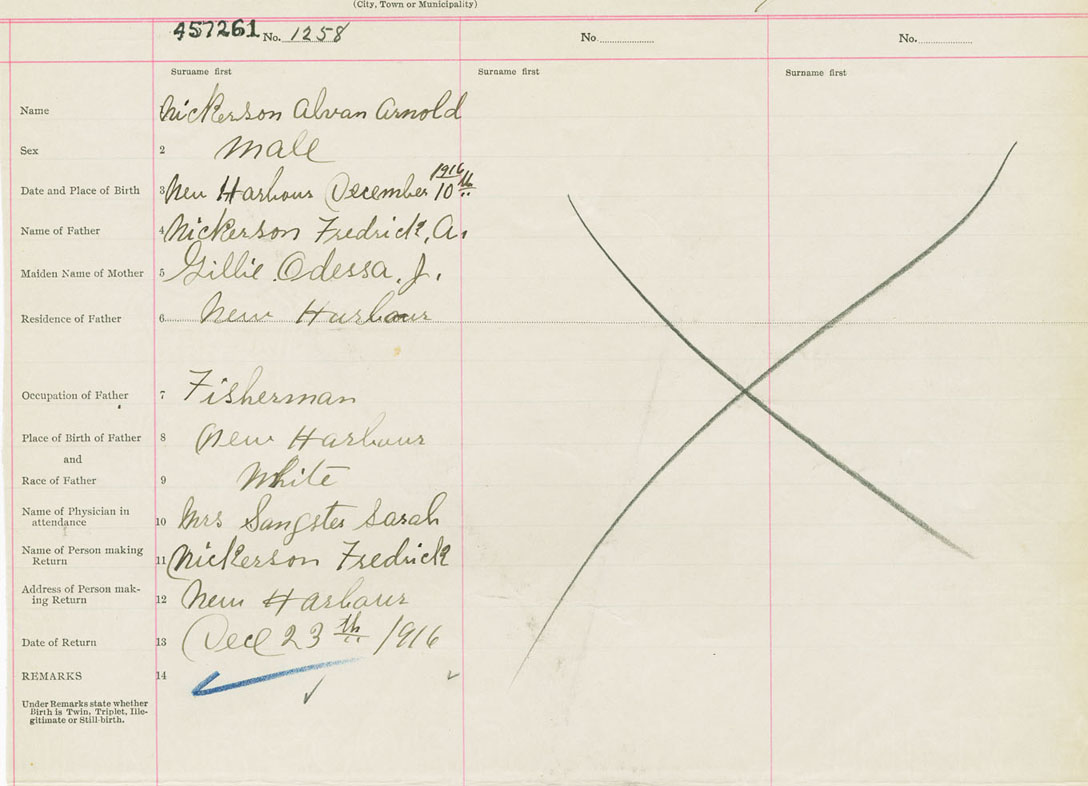 (City, Town or Municipality)
457261 No. 1258
No.
No.
Surname first
Surname first
Surname first
Name Nickerson Alvan Arnold
Sex 2 Male
Date and Place of Birth 3 New Harbour December 10th 1916
Name of Father 4 Nickerson Fredrick, A.
Maiden Name of Mother 5 Gillie Odessa, J.
Residence of Father 6 New Harbour
Occupation of Father 7 Fisherman
Place of Birth of Father 8 New Harbour
and
Race of Father 9 White
Name of Physician in
attendance 10 Mrs Sangster Sarah
Name of Person making
Return 11 Nickerson Fredrick
Address of Person mak-
ing Return 12 New Harbour
Date of Return 13 Dec 23th 1916
REMARKS 14
Under Remarks state whether
Birth is Twin, Triplet, Ille-
gitimate or Still-birth.